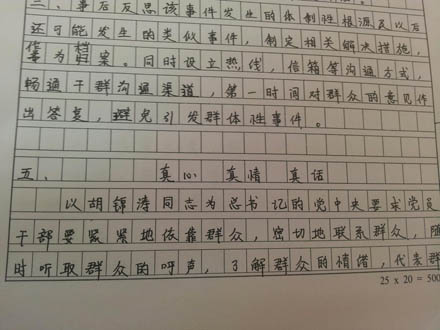 二、事后反思该事件发生的体制性根源及以后
还可能发生的类似事件，制定相关解决措施，
作为档案。同时设立热线，信箱等沟通方式，
畅通干群沟通渠道，第一时间对群众的意见作
出答复，避免引发群体性事件。
五、真心 真情 真话
以胡锦涛同志为总书记的党中央要求党员
干部要紧紧地依靠群众，密切地联系群众，随
时听取群众的呼声，了解群众的情绪，代表群
25 x 20 = 500